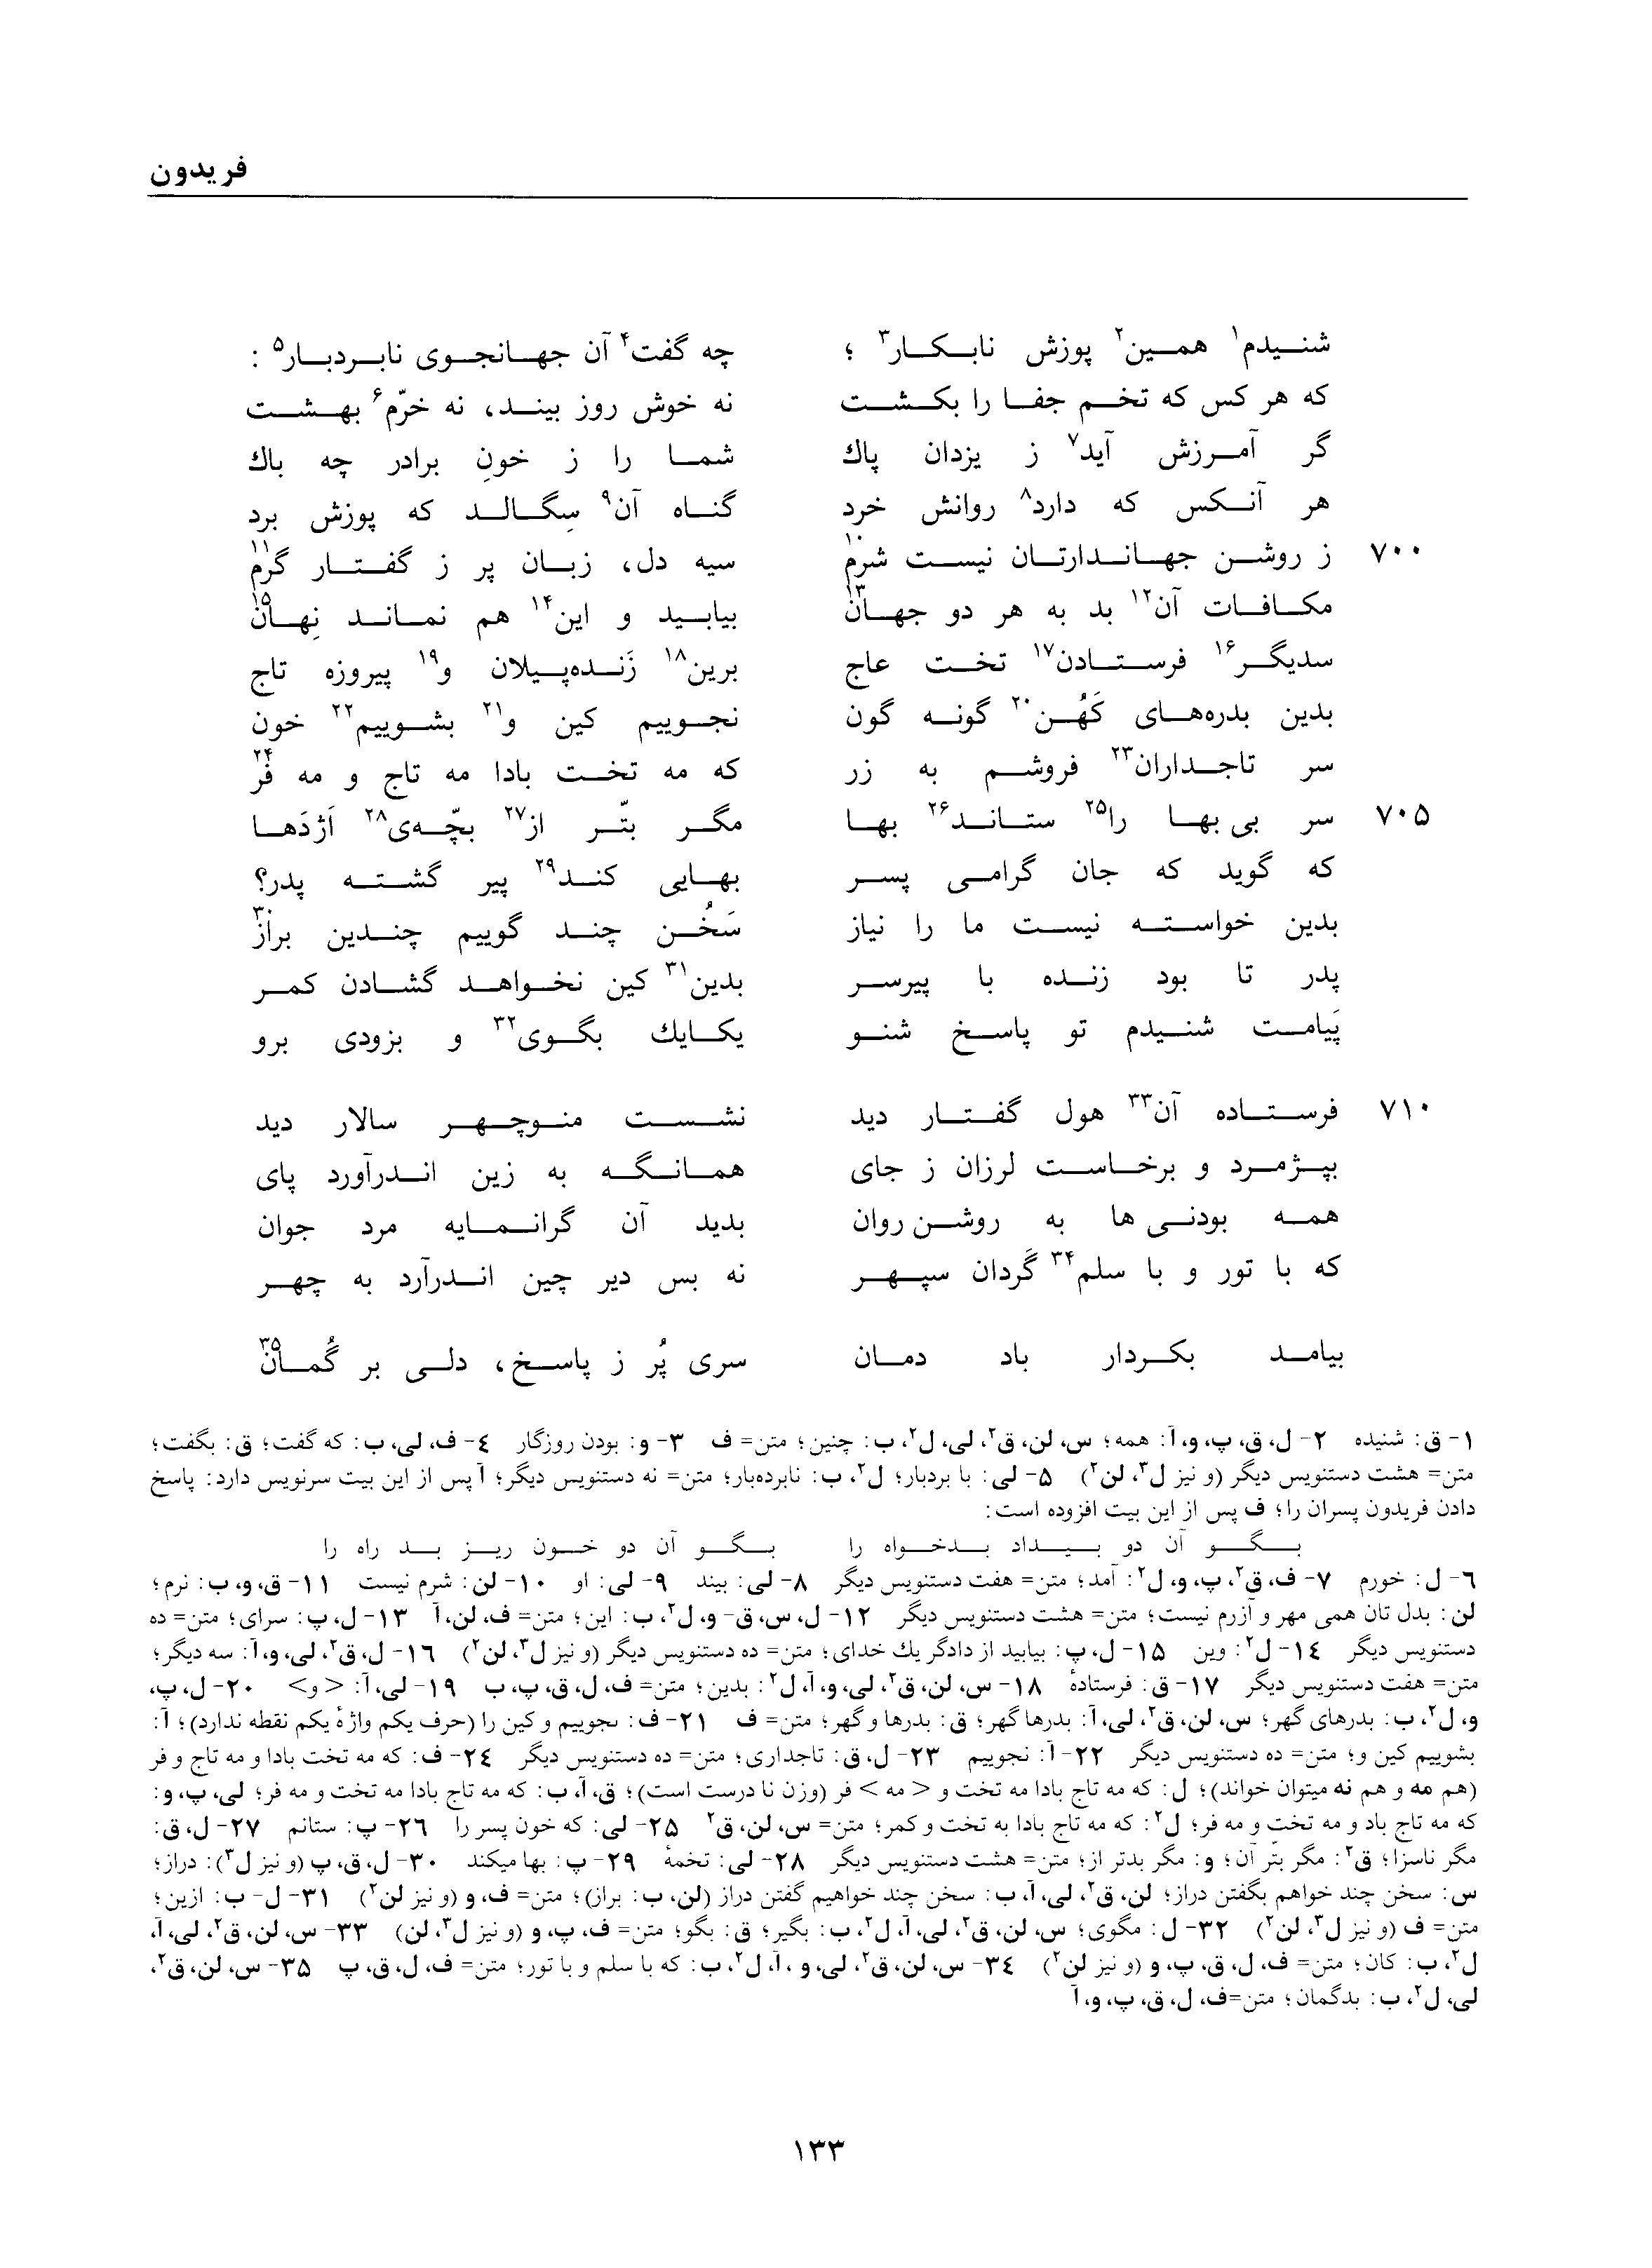 فریدون
شنیدم۱ همین۲ پوزش نابکار۳ ؛ چه گفت۴ آن جهانجوی نابردبار۵ :
که هر کس که تخم جفا را بکشت نه خوش روز بیند، نه خرّم۶ بهشت
گر آمرزش آید۷ ز یزدان پاك شما را ز خونِ برادر چه باك
هر آنکس که دارد۸ روانش خرد گناه آن۹ سِگالد که پوزش برد
۷۰۰ ز روشن جهاندارتان نیست شرم۱۰ سیه دل، زبان پر ز گفتار گرم۱۱
مکافات آن۱۲ بد به هر دو جهان۱۳ بیابید و این۱۴ هم نماند نِهان۱۵
سدیگر۱۶ فرستادن۱۷ تخت عاج برین۱۸ زَنده‌پیلان و۱۹ پیروزه تاج
بدین بدره‌های کَهُن۲۰ گونه گون نجوییم کین و۲۱ بشوییم۲۲ خون
سر تاجداران۲۳ فروشم به زر که مه تخت بادا مه تاج و مه فر۲۴
۷۰۵ سر بی بها را۲۵ ستاند۲۶ بها مگر بتّر از۲۷ بچّه‌ی۲۸ اَژدَها
که گوید که جان گرامی پسر بهایی کند۲۹ پیر گشته پدر؟
بدین خواسته نیست ما را نیاز سَخُن چند گوییم چندین براز۳۰
پدر تا بود زنده با پیرسر بدین۳۱ کین نخواهد گشادن کمر
پَیامت شنیدم تو پاسخ شنو یکایك بگوی۳۲ و بزودی برو
۷۱۰ فرستاده آن۳۳ هول گفتار دید نشست منوچهر سالار دید
بپژمرد و برخاست لرزان ز جای همانگه به زین اندرآورد پای
همه بودنی ها به روشن روان بدید آن گرانمایه مرد جوان
که با تور و با سلم۳۴ گَردان سپهر نه بس دیر چین اندرآرد به چهر
بیامد بکردار باد دمان سری پُر ز پاسخ، دلی بر گُمان۳۵
۱- ق: شنیده ۲- ل، ق، پ، و، آ: همه؛ س، لن، ق۲، لی، ل۲، ب: چنین؛ متن= ف ۳- و: بودن روزگار ٤- ف، لی، ب: که گفت؛ ق: بگفت؛
متن= هشت دستنویس دیگر (و نیز ل۳، لن۲) ۵- لی: با بردبار؛ ل۲، ب: نابرده‌بار؛ متن= نه دستنویس دیگر؛ آ پس از این بیت سرنویس دارد: پاسخ
دادن فریدون پسران را؛ ف پس از این بیت افزوده است:
بگو آن دو بیداد بدخواه را بگو آن دو خون ریز بد راه را
٦- ل: خورم ۷- ف، ق۲، پ، و، ل۲: آمد؛ متن= هفت دستنویس دیگر ۸- لی: بیند ۹- لی: او ۱۰- لن: شرم نیست ۱۱- ق، و، ب: نرم؛
لن: بدل تان همی مهر و آزرم نیست؛ متن= هشت دستنویس دیگر ۱۲- ل، س، ق- و، ل۲، ب: این؛ متن= ف، لن، آ ۱۳- ل، پ: سرای؛ متن= ده
دستنویس دیگر ۱٤- ل۲: وین ۱۵- ل، پ: بیابید از دادگر یك خدای؛ متن= ده دستنویس دیگر (و نیز ل۳، لن۲) ۱٦- ل، ق۲، لی، و، آ: سه دیگر؛
متن= هفت دستنویس دیگر ۱۷- ق: فرستادهٔ ۱۸- س، لن، ق۲، لی، و، آ، ل۲: بدین؛ متن= ف، ل، ق، پ، ب ۱۹- لی، آ: <و> ۲۰- ل، پ،
و، ل۲، ب: بدرهای گهر؛ س، لن، ق۲، لی، آ: بدرها گهر؛ ق: بدرها و گهر؛ متن= ف ۲۱- ف: ىجوییم و کین را (حرف یکم واژهٔ یکم نقطه ندارد)؛ آ:
بشوییم کین و؛ متن= ده دستنویس دیگر ۲۲- آ: نجوییم ۲۳- ل، ق: تاجداری؛ متن= ده دستنویس دیگر ۲٤- ف: که مه تخت بادا و مه تاج و فر
(هم مه و هم نه میتوان خواند)؛ ل: که مه تاج بادا مه تخت و < مه > فر (وزن نا درست است)؛ ق، آ، ب: که مه تاج بادا مه تخت و مه فر؛ لی، پ، و:
که مه تاج باد و مه تخت و مه فر؛ ل۲: که مه تاج بادا به تخت و کمر؛ متن= س، لن، ق۲ ۲۵- لی: که خون پسر را ۲٦- پ: ستانم ۲۷- ل، ق:
مگر ناسزا؛ ق۲: مگر بتّر آن؛ و: مگر بدتر از؛ متن= هشت دستنویس دیگر ۲۸- لی: تخمهٔ ۲۹- پ: بها میکند ۳۰- ل، ق، پ (و نیز ل۳): دراز؛
س: سخن چند خواهم بگفتن دراز؛ لن، ق۲، لی، آ، ب: سخن چند خواهیم گفتن دراز (لن، ب: براز)؛ متن= ف، و (و نیز لن۲) ۳۱- ل- ب: ازین؛
متن= ف (و نیز ل۳، لن۲) ۳۲- ل: مگوی؛ س، لن، ق۲، لی، آ، ل۲، ب: بگیر؛ ق: بگو؛ متن= ف، پ، و (و نیز ل۳، لن) ۳۳- س، لن، ق۲، لی، آ،
ل۲، ب: کان؛ متن= ف، ل، ق، پ، و (و نیز لن۲) ۳٤- س، لن، ق۲، لی، و ،آ، ل۲، ب: که با سلم و با تور؛ متن= ف، ل، ق، پ ۳۵- س، لن، ق۲،
لی، ل۲، ب: بدگمان؛ متن=ف، ل، ق، پ، و، آ
۱۳۳